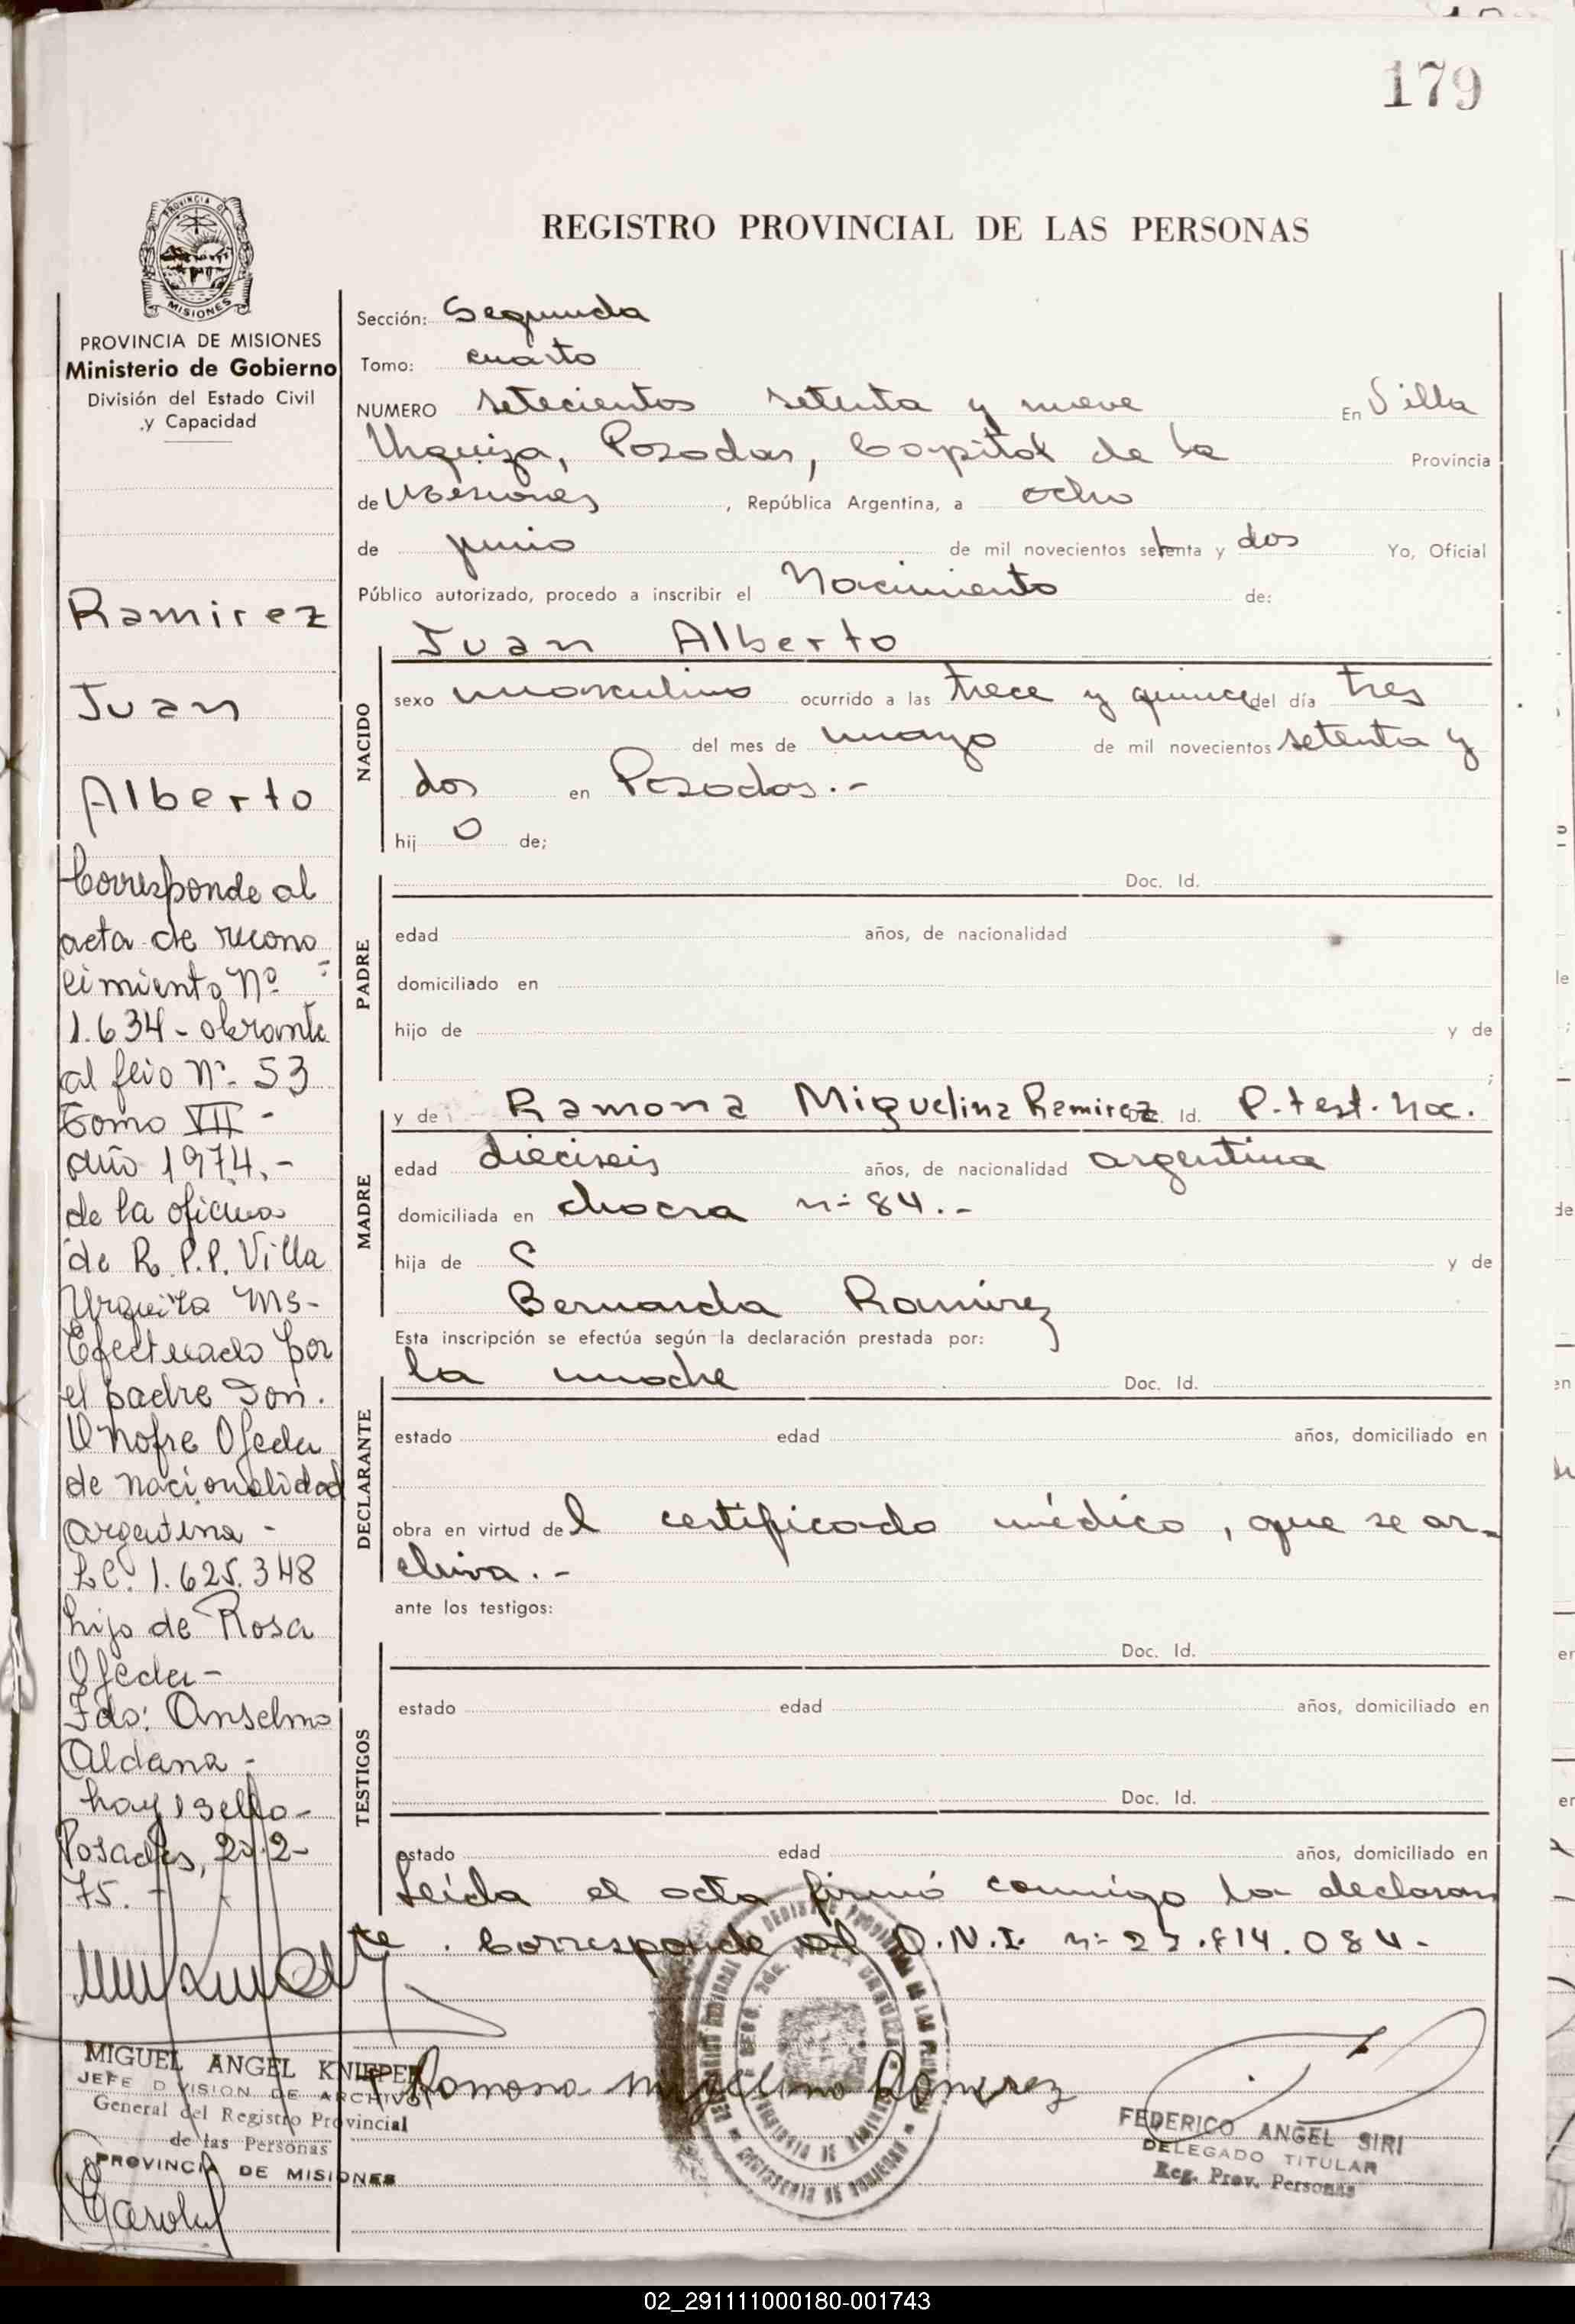 179
REGISTRO PROVINCIAL DE LAS PERSONAS
PROVINCIA DE MISIONES
Ministerio de Gobierno
División del Estado Civil
y Capacidad
Ramirez
Juan
Alberto
Corresponde al
acta de recono
cimiento Nº
1.634 - obrante
al folio Nº 53
Tomo VII -
año 1974.-
de la oficina
de R.P.P. Villa
Urquiza Ms-
Efectuado por
el padre Don.
Onofre Ojeda
de nacionalidad
argentina -
1.625.348
hijo de Rosa
Ojeda -
Fdo: Anselmo
Aldana -
hay 1 sello -
Posadas,
75. -
MIGUEL ANGEL KNIEPER
JEFE DIVISION DE ARCHIVO
General del Registro Provincial
de las Personas
PROVINCIA DE MISIONES
Sección: Segunda
Tomo: cuarto
NUMERO setecientos setenta y nueve En Villa
Urquiza, Posadas, Capital de la Provincia
de Misiones, República Argentina, a ocho
de junio de mil novecientos setenta y dos Yo, Oficial
Público autorizado, procedo a inscribir el Nacimiento de:
Juan Alberto
NACIDO
sexo masculino ocurrido a las trece y quince del día tres
del mes de mayo de mil novecientos setenta y
dos en Posadas.-
hij o de;
PADRE
Doc. Id.
edad años, de nacionalidad
domiciliado en
hijo de y de
;
MADRE
y de Ramona Miguelina Ramirez Doc. Id. P. test. Nac.
edad dieciseis años, de nacionalidad argentina
domiciliada en chacra nº 84.-
hija de y de
Bernarda Ramirez
Esta inscripción se efectúa según la declaración prestada por:
DECLARANTE
la madre Doc. Id.
estado edad años, domiciliado en
obra en virtud del certificado médico, que se ar-
chiva.-
ante los testigos:
TESTIGOS
Doc. Id.
estado edad años, domiciliado en
Doc. Id.
estado edad años, domiciliado en
Leída el acta firmó conmigo la declaran
te. Corresponde al D.N.I. nº
Ramona Miguelina Ramirez
FEDERICO ANGEL SIRI
DELEGADO TITULAR
Reg. Prov. Personas
02_291111000180-001743